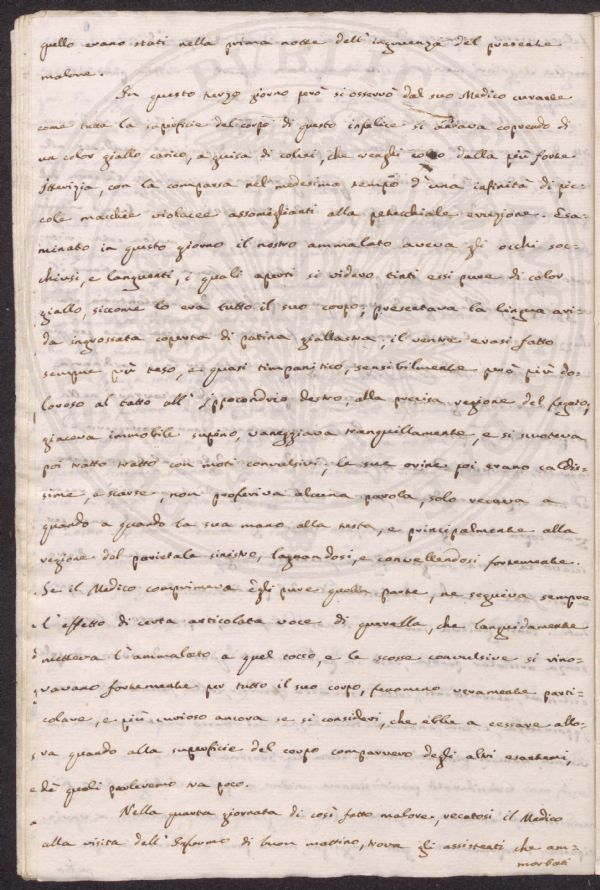 quello erano stati nella prima notte dell'ingruenza del presente
malore.
In questo terzo giorno però si osservò dal suo Medico curante
come tutta la superficie del corpo di questo infelice si andava coprendo di
un color giallo carico, a guisa di coloro, che venghi dalla più forte
Itterizia, con la comparsa nel medesimo tempo d'una infinità di pic-
cole macchie violacee assomiglianti alla petecchiale eruzione. Esa-
minato in questo giorno il nostro ammalato aveva gli occhi soc-
chiusi, e languenti, i quali aperti si videro tinti essi pure di color
giallo, siccome lo era tutto il suo corpo, presentava la lingua ari-
da ingrossata coperta di patina giallastra, il ventre erasi fatto
sempre più teso, e quasi timpanitico, sensibilmente però più do-
loroso al tatto all'Ippocondrio destro, alla precisa regione del fegato,
giaceva immobile supino, vaneggiava tranquillamente, e si scuoteva
poi tratto tratto con moti convulsivi, le sue orine poi erano caldis-
sime, e scarse, non proferiva alcuna parola, solo recava a
quando a quando la sua mano alla testa, e principalmente alla
regione del parietale sinistro, lagnandosi, e convellendosi fortemente.
Se il Medico comprimeva egli pure quella parte, ne seguiva sempre
l'effetto di certa articolata voce di querella, che languidamente
metteva l'ammalato a quel tocco, e le scosse convulsive si rino-
vavano fortemente per tutto il suo corpo, fenomeno veramente parti-
colare, e più curioso ancora se si consideri, che ebbe a cessare allo-
ra quando alla superficie del corpo comparvero degli altri esantemi,
de quali parleremo tra poco.
Nella quarta giornata di così fatto malore, recatosi il Medico
alla visita dell'Infermo di buon mattino, trova gli assistenti che am-
morbati